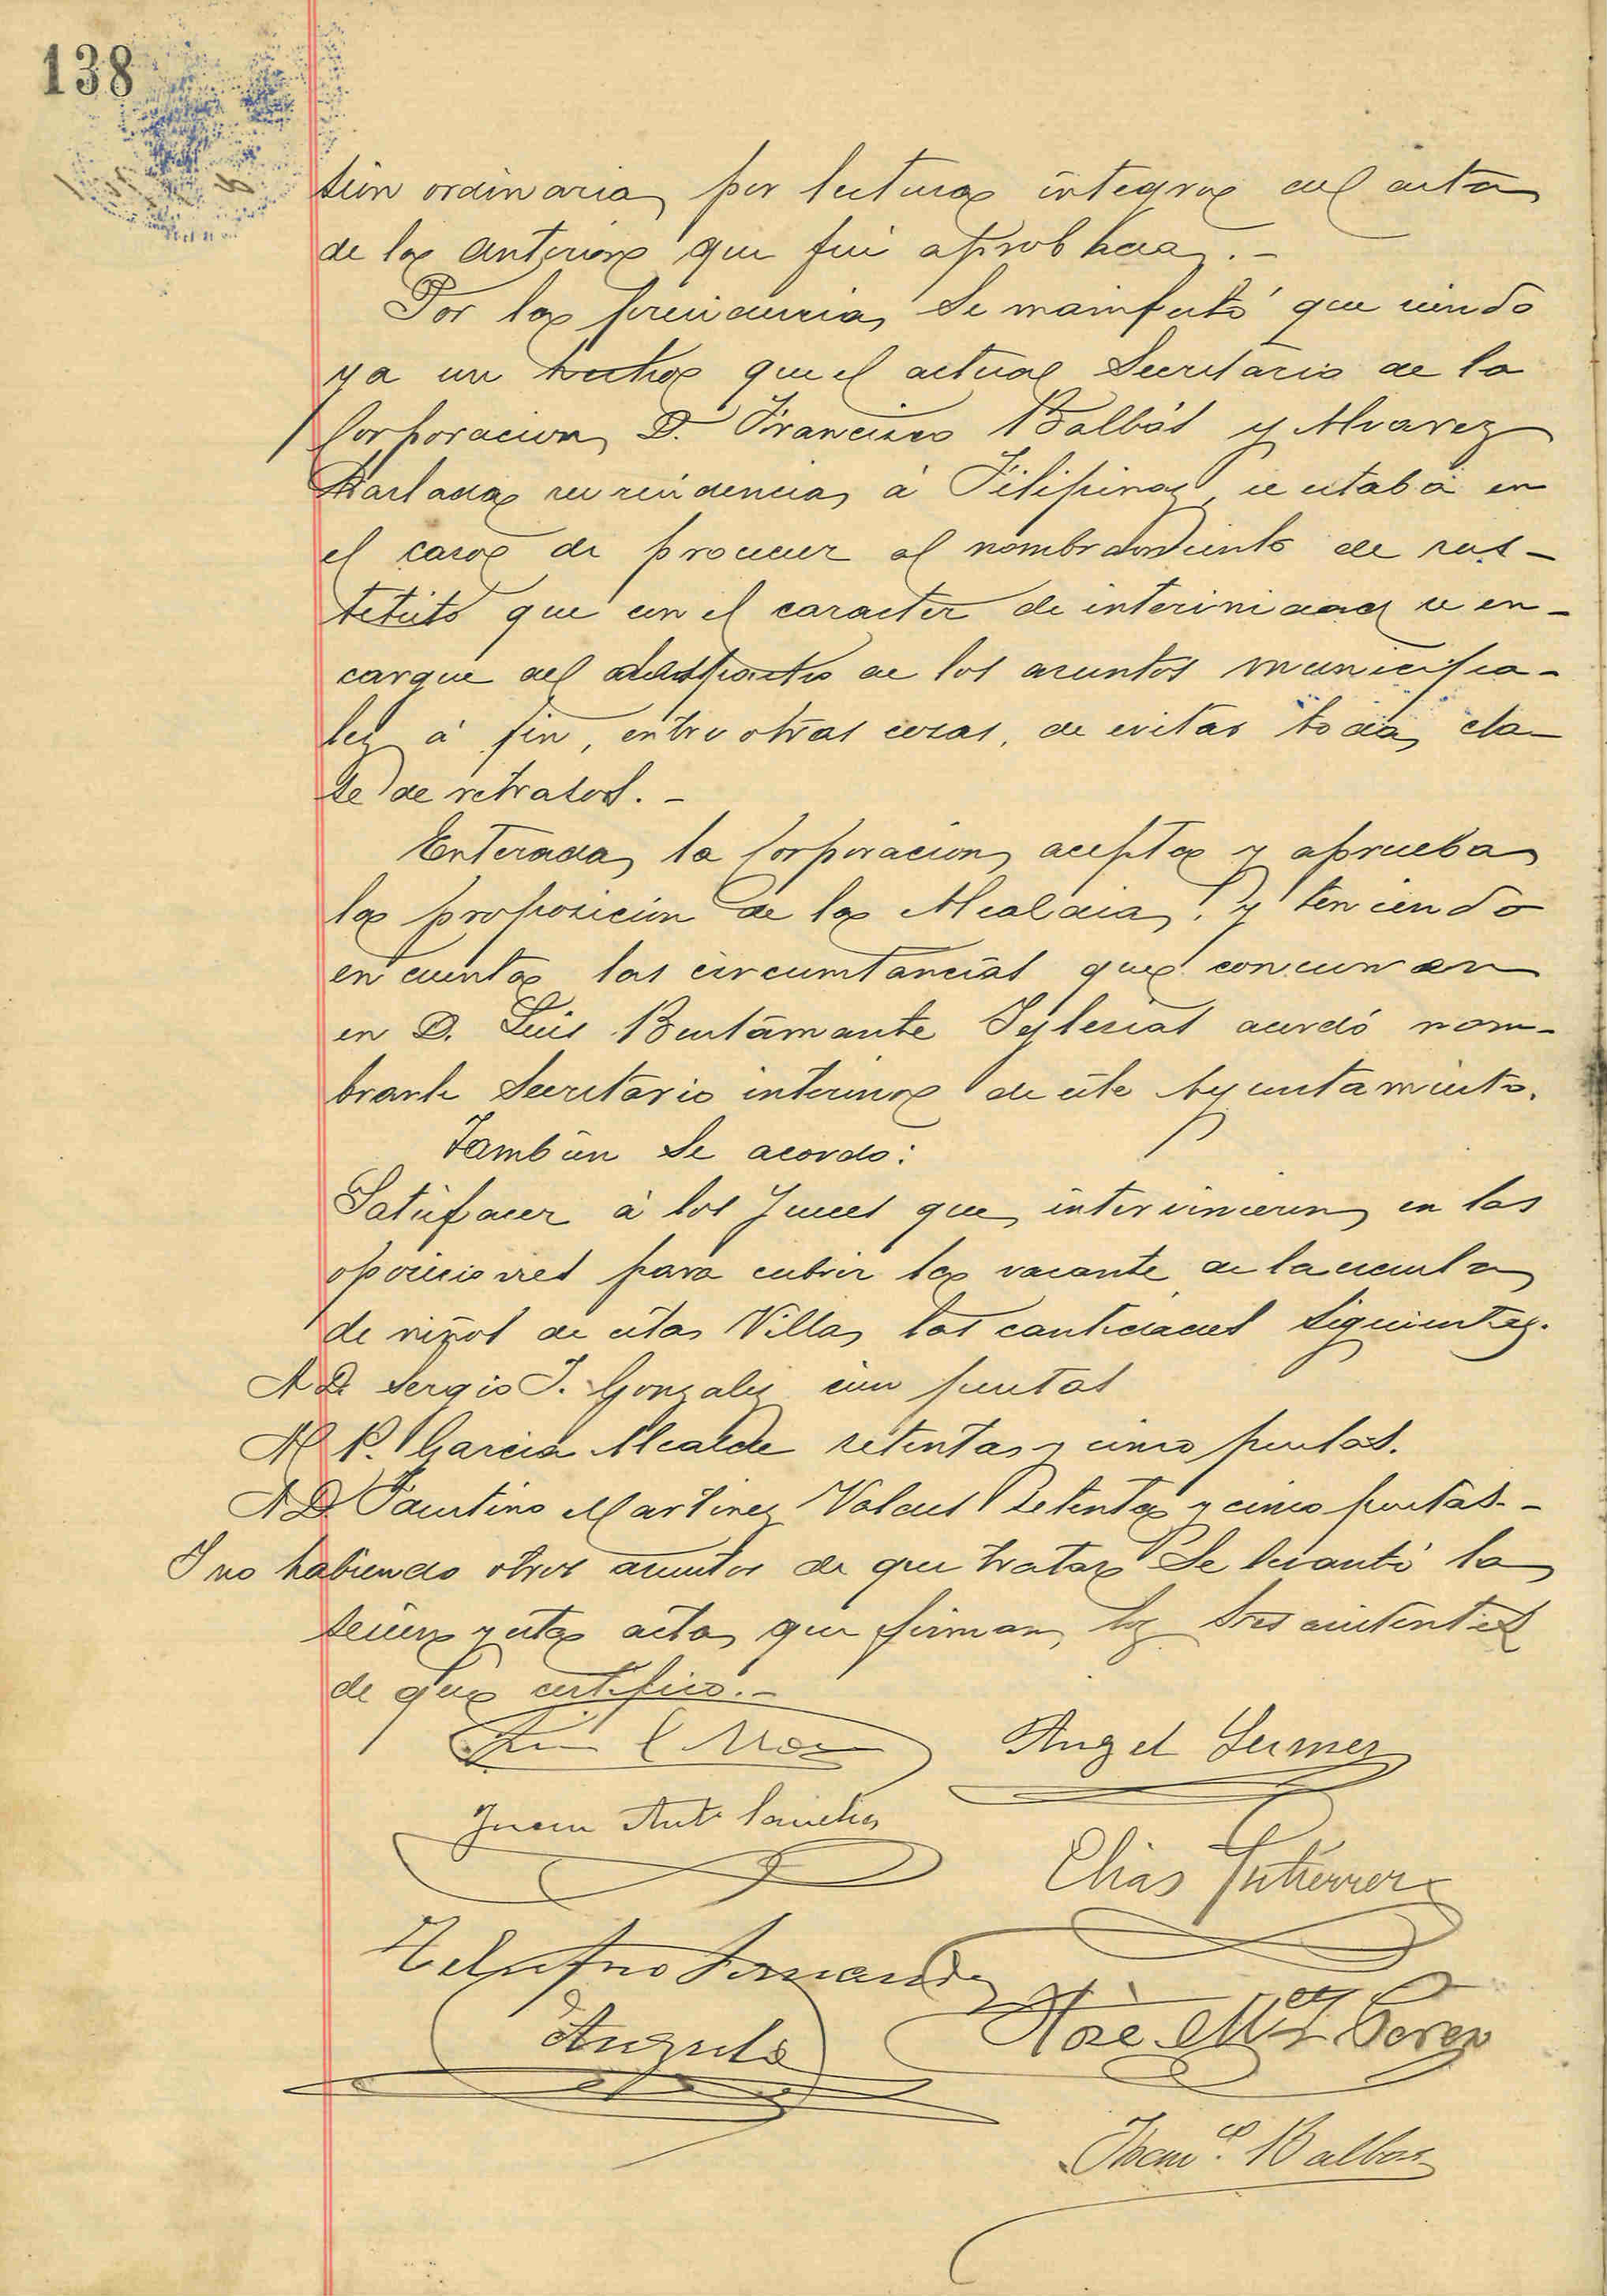 138
sión ordinaria por lectura integra del acta
de la anterior que fué aprobada.-
Por la presidencia se manifestó que siendo
ya un hecho que el actual Secretario de la
Corporacion D. Francisco Balbás y Alvarez
traslada su residencia á Filipinas, se estaba en
el caso de proceder al nombramiento de sus-
tituto que con el caracter de interinidad se en-
cargue del despacho de los asuntos municipa-
les á fin, entre otras cosas, de evitar toda cla-
se de retrasos.-
Enterada la Corporacion acepta y aprueba
la proposición de la Alcaldia; y teniendo
en cuenta las circunstancias que concurren
en D. Luis Bustamante Iglesias acordó nom-
brarle Secretario interino de este Ayuntamiento.
Tambien se acordo:
Satisfacer á los Jueces que intervinieron en las
oposiciones para cubrir la vacante de la escuela
de niños de esta Villa las cantidades siguientes.
A D. Sergio J. Gonzalez cien pesetas
Al P. Garcia Alcalde setenta y cinco pesetas.
A D. Faustino Martinez Valdes setenta y cinco pesetas.-
Y no habiendo otros asuntos de que tratar se levantó la
sesion y esta acta que firman los Sres asistentes
de que certifico.-
Angel
Juan Antº Sanchez
Elias Gutierrez
Telesforo Fernandez
Angulo
José Mª Perez
Francº Balbas